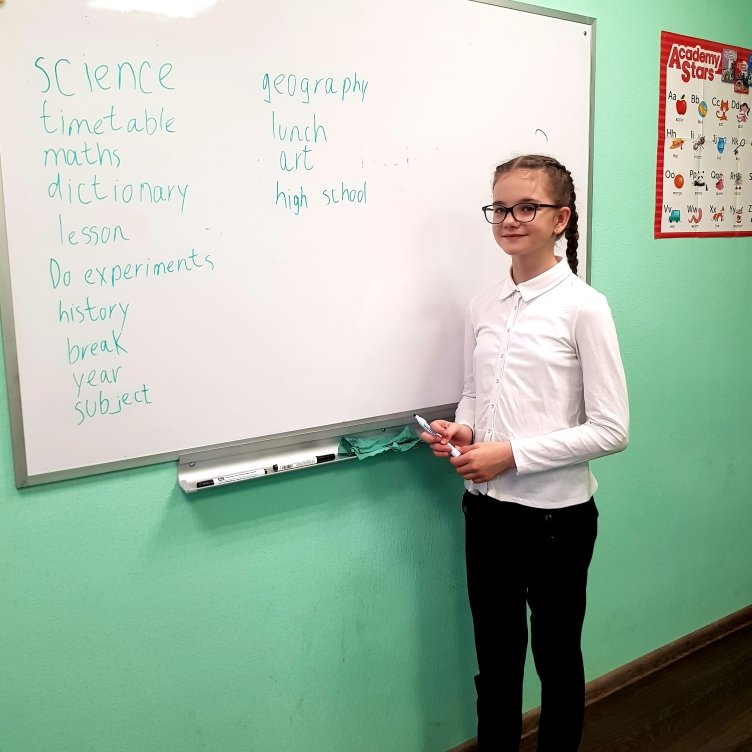 science
timetable
maths
dictionary
lesson
Do experiments
history
break
year
subject
geography
lunch
art
high school
Academy
Stars
Aa
Bb
Cc
Dd
Hh
Ii
Jj
Kk
Oo
Pp
Qq
Rr
Vv
Ww
Xx
Yy